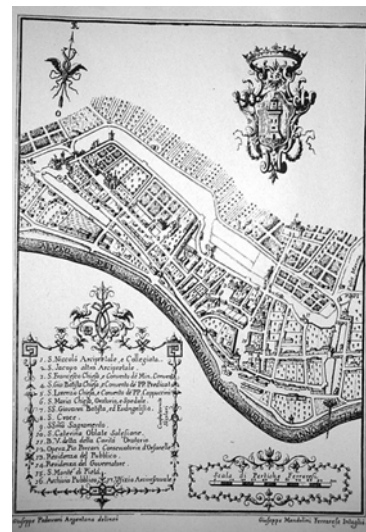 1. S. Nicolò Arcipretale, e Collegiata.
2. S. Jacopo altra Arcipretale.
3. S. Francesco Chiesa, e Convento de' Min. Convent.
4. S. Gio: Batista Chiesa, e Convento de' PP. Predicat.
5. S. Lorenzo Chiesa, e Convento de' PP. Cappuccini
6. S. Maria Chiesa, Oratorio, e Spedale.
7. SS. Giovanni Batista, ed Evangelista.
8. S. Croce.
9. SSmo Sagramento.
10. S. Caterina Oblate Salesiane.
11. B. V. detta della Carità Oratorio
12. Opera Pia Conservatorio
13. Residenza del Pubblico.
14. Residenza del Governatore.
15. S. Monte di Pietà.
16. Archivio Pubblico, e 17. Uffizio
Scala di Pertiche Ferraresi
Giuseppe Argentano delineò
Giuseppe Mandolini Ferrarese Intagliò